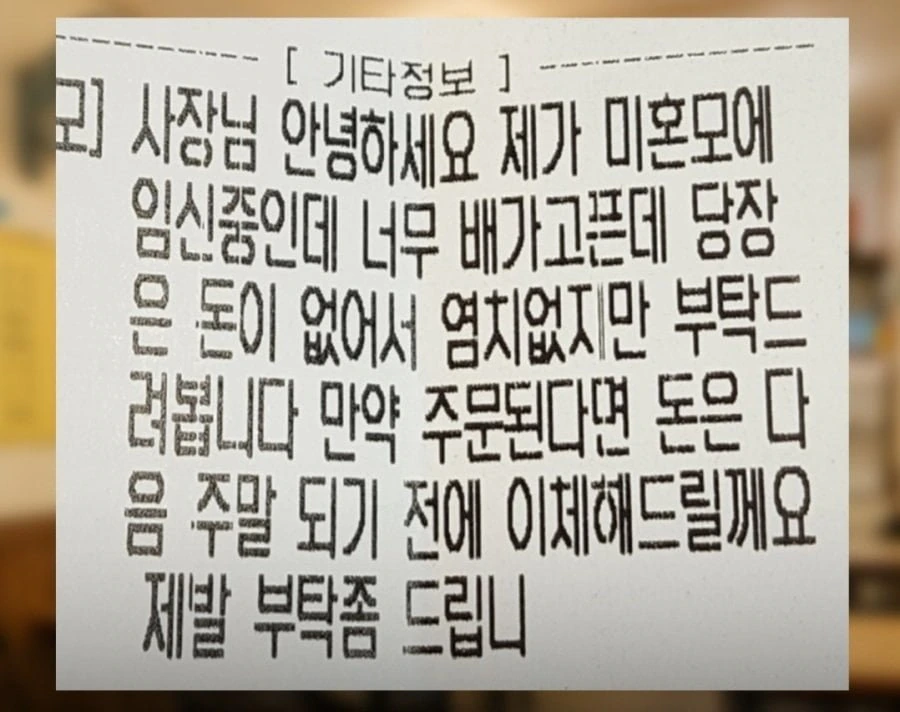 [ 기타정보 ]
모] 사장님 안녕하세요 제가 미혼모에
임신중인데 너무 배가고픈데 당장
은 돈이 없어서 염치없지만 부탁드
려봅니다 만약 주문된다면 돈은 다
음 주말 되기 전에 이체해드릴께요
제발 부탁좀 드립니